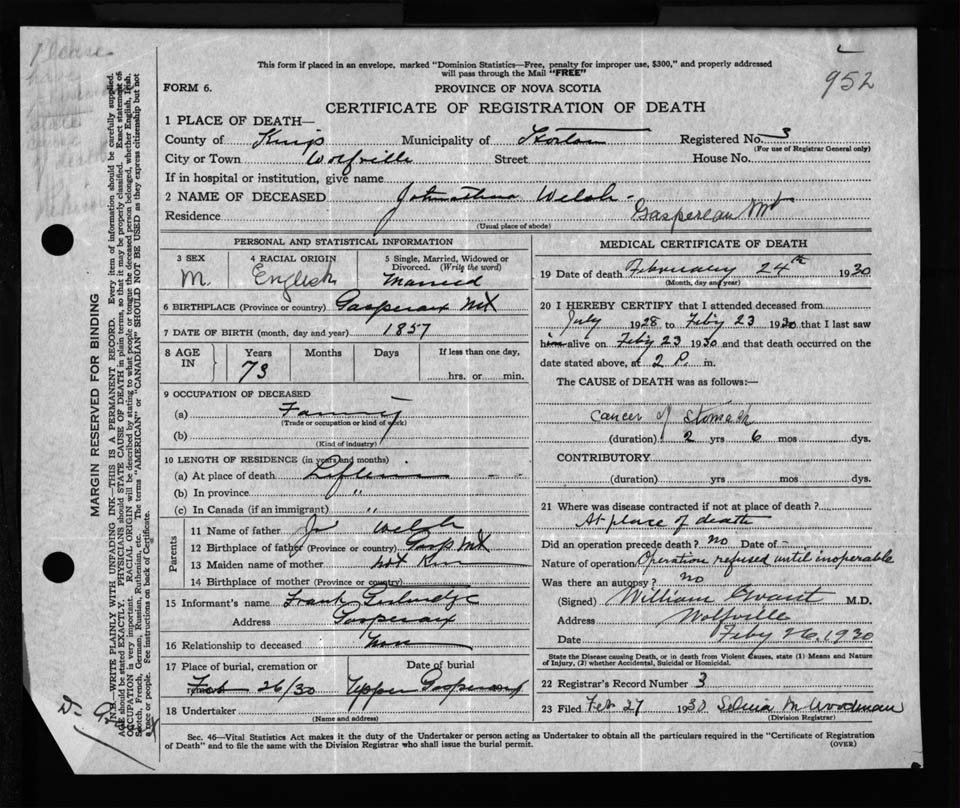 Please
have
952
This form if placed in an envelope, marked "Dominion Statistics—Free, penalty for improper use, $300," and properly addressed
will pass through the Mail "FREE"
FORM 6. PROVINCE OF NOVA SCOTIA
CERTIFICATE OF REGISTRATION OF DEATH
1 PLACE OF DEATH—
County of Kings Municipality of Horton Registered No. 3
(For use of Registrar General only)
City or Town Wolfville Street House No.
If in hospital or institution, give name
2 NAME OF DECEASED Welsh
Residence Gaspereau Mt
(Usual place of abode)
PERSONAL AND STATISTICAL INFORMATION
3 SEX 4 RACIAL ORIGIN 5 Single, Married, Widowed or
Divorced. (Write the word)
M. English Married
6 BIRTHPLACE (Province or country) Gaspereaux Mt
7 DATE OF BIRTH (month, day and year) 1857
8 AGE IN Years Months Days If less than one day,
73 hrs. or min.
9 OCCUPATION OF DECEASED
(a) Farming
(Trade or occupation or kind of work)
(b)
(Kind of industry)
10 LENGTH OF RESIDENCE (in years and months)
(a) At place of death Lifetime
(b) In province "
(c) In Canada (if an immigrant) "
Parents
11 Name of father Welsh
12 Birthplace of father (Province or country) Gasp Mt
13 Maiden name of mother not
14 Birthplace of mother (Province or country)
15 Informant's name Frank
Address Gaspereaux
16 Relationship to deceased
17 Place of burial, cremation or Date of burial
Feb 26/30 Upper Gaspereaux
18 Undertaker
(Name and address)
MEDICAL CERTIFICATE OF DEATH
19 Date of death February 24th 1930
(Month, day and year)
20 I HEREBY CERTIFY that I attended deceased from
July 1928 to Feb'y 23 1930 that I last saw
him alive on Feb'y 23 1930 and that death occurred on the
date stated above, at 2 P. m.
The CAUSE OF DEATH was as follows:—
Cancer of Stomach
(duration) 2 yrs 6 mos dys.
CONTRIBUTORY
(duration) yrs mos dys.
21 Where was disease contracted if not at place of death?
At place of death
Did an operation precede death? no Date of -
Nature of operation Operation refused until inoperable
Was there an autopsy? no
(Signed) William M.D.
Address Wolfville
Date Feby 26, 1930
State the Disease causing Death, or in death from Violent Causes, state (1) Means and Nature
of Injury, (2) whether Accidental, Suicidal or Homicidal.
22 Registrar's Record Number 3
23 Filed Feb 27 1930 M Woodman
(Division Registrar)
Sec. 46—Vital Statistics Act makes it the duty of the Undertaker or person acting as Undertaker to obtain all the particulars required in the "Certificate of Registration
of Death" and to file the same with the Division Registrar who shall issue the burial permit. (OVER)
MARGIN RESERVED FOR BINDING
N.B.—WRITE PLAINLY WITH UNFADING INK—THIS IS A PERMANENT RECORD. Every item of information should be carefully supplied.
AGE should be stated EXACTLY. PHYSICIANS should STATE CAUSE OF DEATH in plain terms, so that it may be properly classified. Exact statement of
OCCUPATION is very important. RACIAL ORIGIN will be described by stating to what people or tongue the deceased person belonged, whether English, Irish,
Scotch, French, German, Russian, Ruthenian, etc. The terms "AMERICAN" or "CANADIAN" SHOULD NOT BE USED as they express citizenship but not
a race or people. See instructions on back of Certificate.